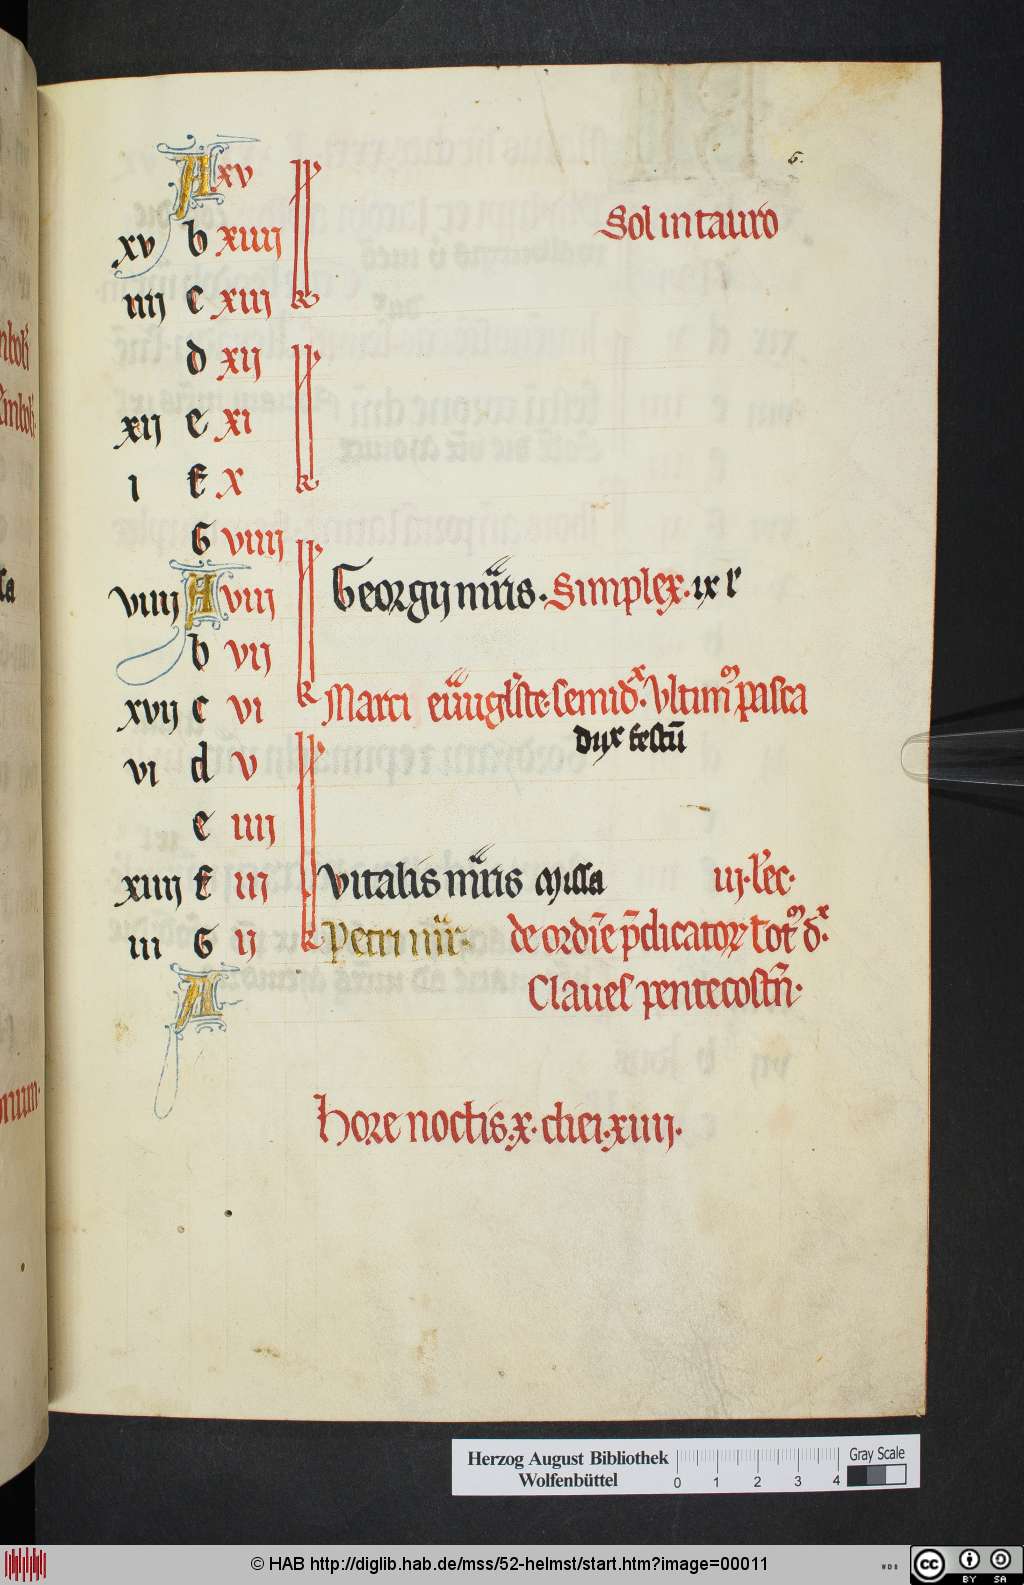 6.
A xv
Sol in tauro
xv b xiiij
iiij c xiij
d xij
xij e xi
i f x
G viiij
viiij A viij Georgij mr̄is. Simplex. ix l'
b vij
xvij c vi Marci ewāgl'iste. semid'x Vltim9 pasca
dijx festū
vi d v
e iiij
xiiij f iij Vitalis mr̄is Missa iij. l'ec.
iij G ij Petri mr̄. de ordīe p̄dicatorꝝ tot9 d'x.
A Claues pentecostn̄.
Hore noctis. x. diei. xiiij.
Herzog August Bibliothek
Wolfenbüttel
0 1 2 3 4
Gray Scale
© HAB http://diglib.hab.de/mss/52-helmst/start.htm?image=00011
WDB
cc BY SA